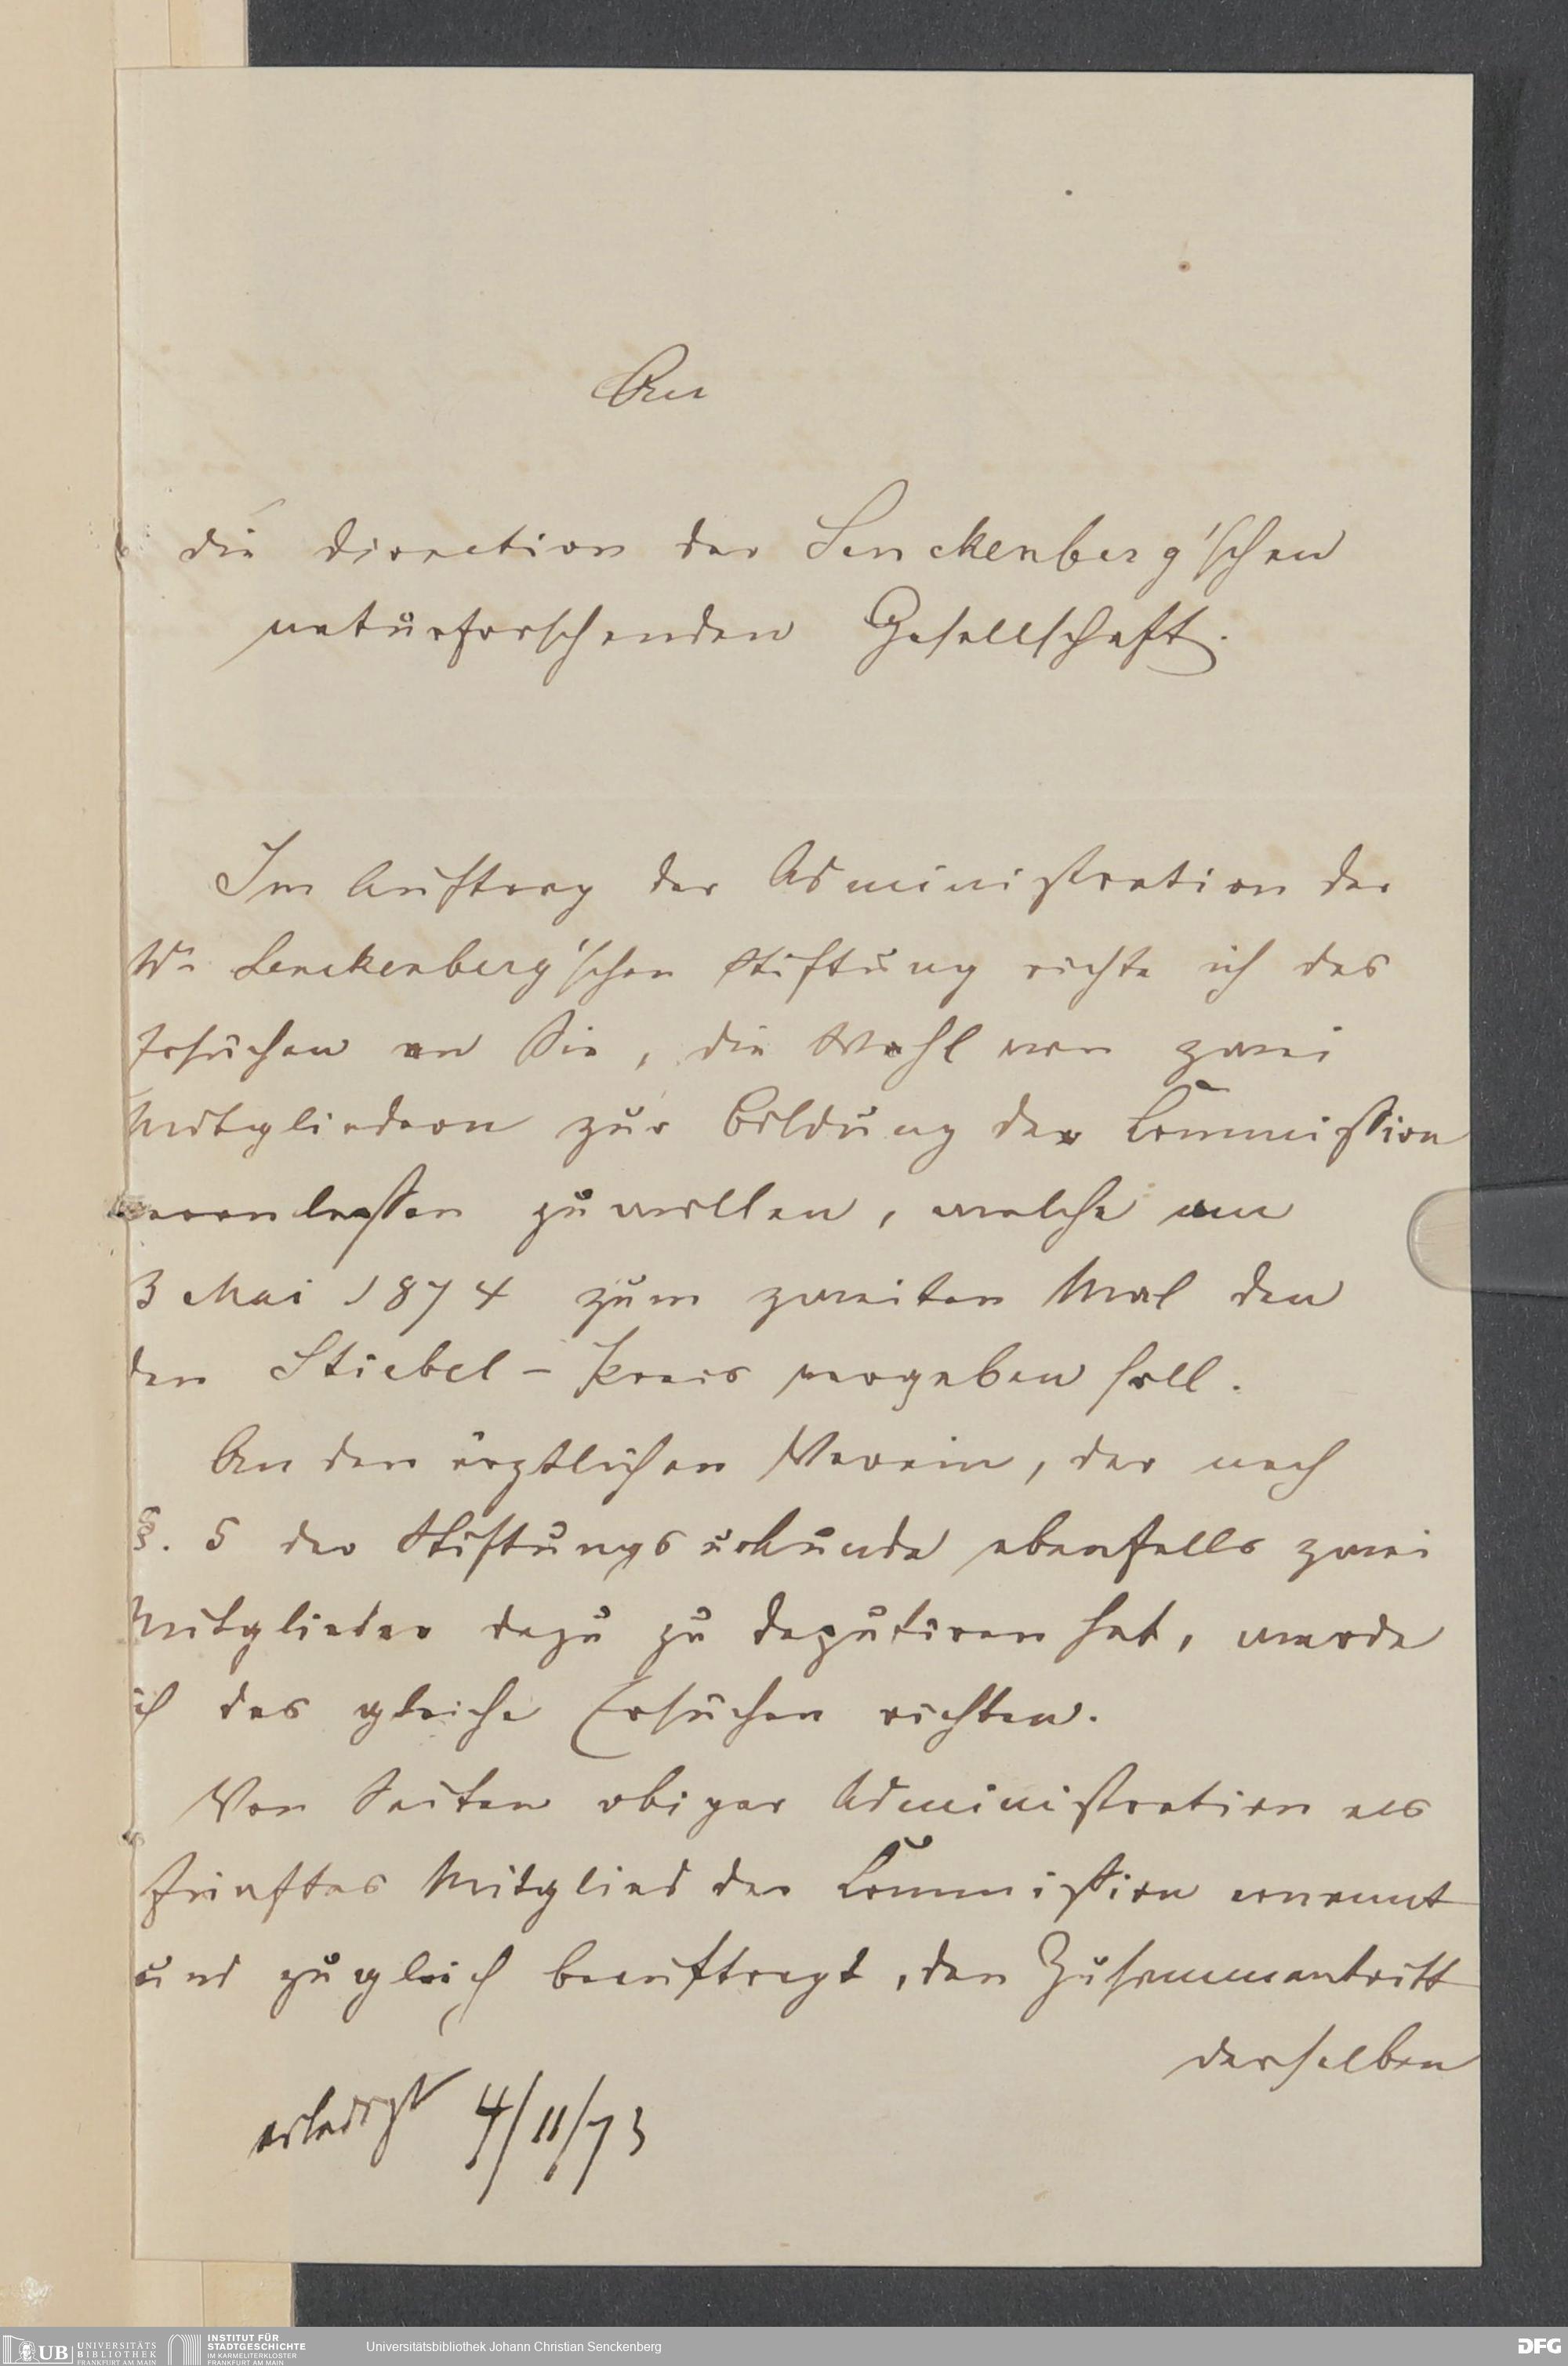 An
die Direction der Senckenberg'schen
naturforschenden Gesellschaft.
Im Auftrag der Administration der
Dr. Senckenberg'schen Stiftung richte ich das
Ersuchen an Sie, die Wahl von zwei
Mitgliedern zur Bildung der Commission
veranlassen zu wollen, welche am
3 Mai 1874 zum zweiten Mal den
den Stiebel-Preis vergeben soll.
An den ärztlichen Verein, der nach
§. 5 der Stiftungsurkunde ebenfalls zwei
Mitglieder dazu zu deputiren hat, werde
ich das gleiche Ersuchen richten.
Von Seiten obiger Administration als
fünftes Mitglied der Commission ernannt
und zugleich beauftragt, den Zusammentritt
derselben
erledigt 4/11/73
UB UNIVERSITÄTS BIBLIOTHEK FRANKFURT AM MAIN
INSTITUT FÜR STADTGESCHICHTE IM KARMELITERKLOSTER FRANKFURT AM MAIN
Universitätsbibliothek Johann Christian Senckenberg
DFG